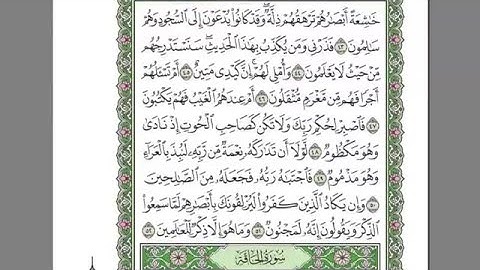 خَٰشِعَةً أَبْصَٰرُهُمْ تَرْهَقُهُمْ ذِلَّةٌ ۖ وَقَدْ كَانُوا۟ يُدْعَوْنَ إِلَى ٱلسُّجُودِ وَهُمْ
سَٰلِمُونَ ٤٣ فَذَرْنِى وَمَن يُكَذِّبُ بِهَٰذَا ٱلْحَدِيثِ ۖ سَنَسْتَدْرِجُهُم
مِّنْ حَيْثُ لَا يَعْلَمُونَ ٤٤ وَأُمْلِى لَهُمْ ۚ إِنَّ كَيْدِى مَتِينٌ ٤٥ أَمْ تَسْـَٔلُهُمْ
أَجْرًا فَهُم مِّن مَّغْرَمٍ مُّثْقَلُونَ ٤٦ أَمْ عِندَهُمُ ٱلْغَيْبُ فَهُمْ يَكْتُبُونَ
٤٧ فَٱصْبِرْ لِحُكْمِ رَبِّكَ وَلَا تَكُن كَصَاحِبِ ٱلْحُوتِ إِذْ نَادَىٰ
وَهُوَ مَكْظُومٌ ٤٨ لَّوْلَآ أَن تَدَٰرَكَهُۥ نِعْمَةٌ مِّن رَّبِّهِۦ لَنُبِذَ بِٱلْعَرَآءِ
وَهُوَ مَذْمُومٌ ٤٩ فَٱجْتَبَٰهُ رَبُّهُۥ فَجَعَلَهُۥ مِنَ ٱلصَّٰلِحِينَ
٥٠ وَإِن يَكَادُ ٱلَّذِينَ كَفَرُوا۟ لَيُزْلِقُونَكَ بِأَبْصَٰرِهِمْ لَمَّا سَمِعُوا۟
ٱلذِّكْرَ وَيَقُولُونَ إِنَّهُۥ لَمَجْنُونٌ ٥١ وَمَا هُوَ إِلَّا ذِكْرٌ لِّلْعَٰلَمِينَ ٥٢
سُورَةُ الْحَاقَّةِ